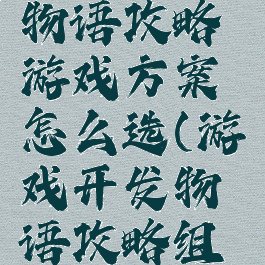 物语攻略
游戏方案
怎么选(游
戏开发物
语攻略组